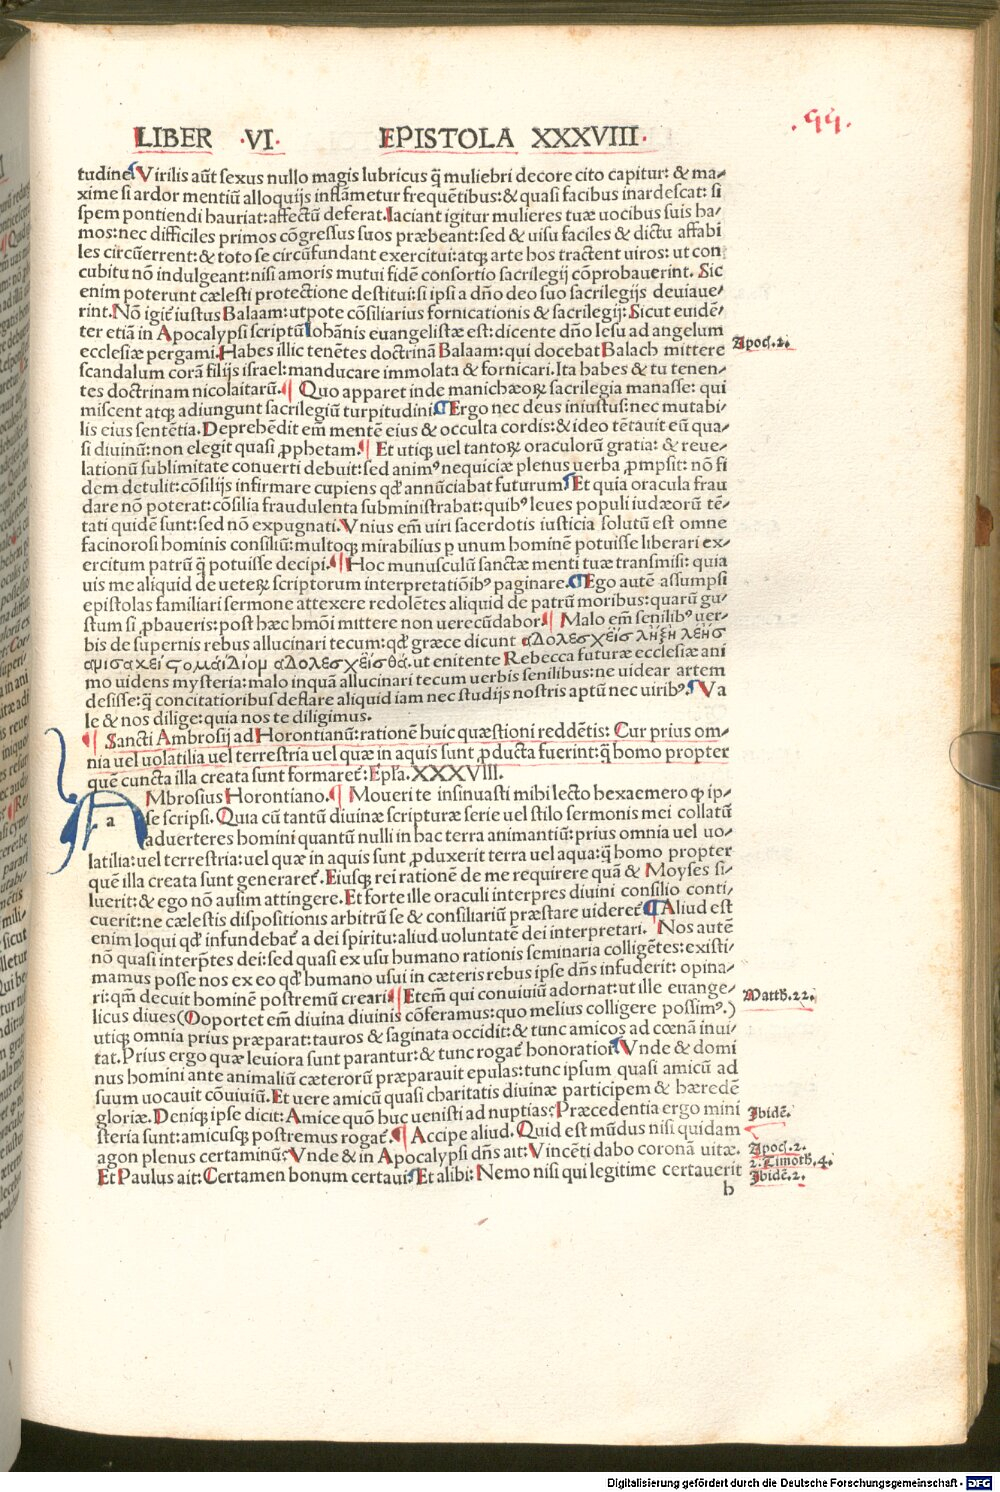 LIBER ·VI· EPISTOLA XXXVIII·
.99.
tudine Virilis aūt sexus nullo magis lubricus q̄ muliebri decore cito capitur: & ma⸗
xime si ardor mentiū alloquijs inflāmetur frequētibus: & quasi facibus inardescat: si
spem pontiendi hauriat: affectū deferat. Iaciant igitur mulieres tuæ uocibus suis ha⸗
mos: nec difficiles primos cōgressus suos præbeant: sed & uisu faciles & dictu affabi
les circūerrent: & toto se circūfundant exercitui: atq; arte hos tractent uiros: ut con
cubitu nō indulgeant: nisi amoris mutui fidē consortio sacrilegij cōprobauerint. Sic
enim poterunt cælesti protectione destitui: si ipsi a dño deo suo sacrilegijs deuiaue⸗
rint. Nō igit̄ iustus Balaam: utpote cōsiliarius fornicationis & sacrilegij: Sicut euidē⸗
ter etiā in Apocalypsi scriptū Iohānis euangelistæ est: dicente dño Iesu ad angelum
ecclesiæ pergami. Habes illic tenētes doctrinā Balaam: qui docebat Balach mittere
Apoc̄. 2.
scandalum corā filijs israel: manducare immolata & fornicari. Ita habes & tu tenen⸗
tes doctrinam nicolaitarū. ¶ Quo apparet inde manichæoꝝ sacrilegia manasse: qui
miscent atq; adiungunt sacrilegiū turpitudini ¶ Ergo nec deus iniustus: nec mutabi⸗
lis eius sentētia. Deprehēdit em̄ mentē eius & occulta cordis: & ideo tētauit eū qua⸗
si diuinū: non elegit quasi ꝓphetam. ¶ Et utiq; uel tantoꝝ oraculorū gratia: & reue⸗
lationū sublimitate conuerti debuit: sed animꝰ nequiciæ plenus uerba ꝓmpsit: nō fi
dem detulit: cōsilijs infirmare cupiens qđ annūciabat futurum ¶ Et quia oracula frau
dare nō poterat: cōsilia fraudulenta subministrabat: quibꝰ leues populi iudæorū tē⸗
tati quidē sunt: sed nō expugnati. Vnius em̄ uiri sacerdotis iusticia solutū est omne
facinorosi hominis consiliū: multoq; mirabilius p unum hominē potuisse liberari ex⸗
ercitum patrū q̄ potuisse decipi. ¶ Hoc munusculū sanctæ menti tuæ transmisi: quia
uis me aliquid de ueteꝝ scriptorum interpretatiōibꝰ paginare. ¶ Ego autē assumpsi
epistolas familiari sermone attexere redolētes aliquid de patrū moribus: quarū gu⸗
stum si ꝓbaueris: post hæc hmōi mittere non uerecūdabor ¶ Malo em̄ senilibꝰ uer⸗
bis de supernis rebus allucinari tecum: qđ græce dicunt
ut enitente Rebecca futuræ ecclesiæ ani
mo uidens mysteria: malo inquā allucinari tecum uerbis senilibus: ne uidear artem
desisse: q̄ concitatioribus deflare aliquid iam nec studijs nostris aptū nec uiribꝰ. ¶ Va
le & nos dilige: quia nos te diligimus.
¶ Sancti Ambrosij ad Horontianū: rationē huic quæstioni reddētis: Cur prius om⸗
nia uel uolatilia uel terrestria uel quæ in aquis sunt ꝓducta fuerint: q̄ homo propter
quē cuncta illa creata sunt formaret̄: Epl̄a. XXXVIII.
a
AMbrosius Horontiano. ¶ Moueri te insinuasti mihi lecto hexaemero ꝙ ip⸗
se scripsi. Quia cū tantū diuinæ scripturæ serie uel stilo sermonis mei collatū
aduerteres homini quantū nulli in hac terra animantiū: prius omnia uel uo⸗
latilia: uel terrestria: uel quæ in aquis sunt ꝓduxerit terra uel aqua: q̄ homo propter
quē illa creata sunt generaret̄. Eiusq; rei rationē de me requirere quā & Moyses si⸗
luerit: & ego nō ausim attingere. Et forte ille oraculi interpres diuini consilio conti⸗
cuerit: ne cælestis dispositionis arbitrū se & consiliariū præstare uideret̄ ¶ Aliud est
enim loqui qđ infundebat̄ a dei spiritu: aliud uoluntatē dei interpretari. Nos autē
nō quasi interp̄tes dei: sed quasi ex usu humano rationis seminaria colligētes: existi
mamus posse nos ex eo qđ humano usui in cæteris rebus ipse dñs infuderit: opina⸗
ri: qm̄ decuit hominē postremū creari ¶ Etem̄ qui conuiuiū adornat: ut ille euange⸗
Matth. 22.
licus diues (Ooportet em̄ diuina diuinis cōferamus: quo melius colligere possimꝰ.)
utiq; omnia prius præparat: tauros & saginata occidit: & tunc amicos ad cœnā inui⸗
tat. Prius ergo quæ leuiora sunt parantur: & tunc rogat̄ honoratior ¶ Vnde & domi
nus homini ante animaliū cæterorū præparauit epulas: tunc ipsum quasi amicū ad
suum uocauit cōuiuiū. Et uere amicū quasi charitatis diuinæ participem & hæredē
gloriæ. Deniq; ipse dicit: Amice quō huc uenisti ad nuptias: Præcedentia ergo mini
Ibidē.
steria sunt: amicusq; postremus rogat̄. ¶ Accipe aliud. Quid est mūdus nisi quidam
agon plenus certaminū: Vnde & in Apocalypsi dñs ait: Vincēti dabo coronā uitæ.
Apoc̄. 2.
2. Timoth. 4.
Et Paulus ait: Certamen bonum certaui ¶ Et alibi: Nemo nisi qui legitime certauerit
Ibidē. 2.
b
Digitalisierung gefördert durch die Deutsche Forschungsgemeinschaft - DFG